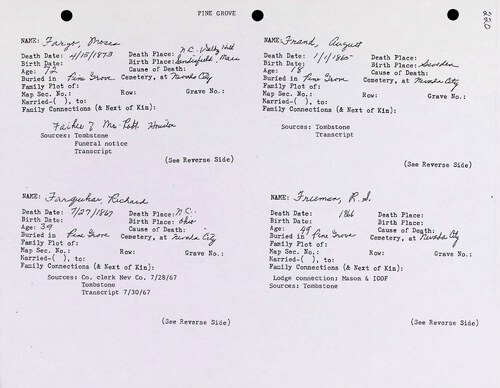 PINE GROVE
220
NAME: Fargo, Moses
Death Date: 4/15/1873 Death Place: N.C.
Birth Date: Birth Place: Mass
Age: 72 Cause of Death:
Buried in Pine Grove Cemetery, at Nevada City
Family Plot of:
Map Sec. No.: Row: Grave No.:
Married-( ), to:
Family Connections (& Next of Kin):
Father of Mrs. Robt
Sources: Tombstone
Funeral notice
Transcript
(See Reverse Side)
NAME: Frand, August
Death Date: 1/1/1865 Death Place:
Birth Date: Birth Place: Sweden
Age: 18 Cause of Death:
Buried in Pine Grove Cemetery, at Nevada City
Family Plot of:
Map Sec. No.: Row: Grave No.:
Married-( ), to:
Family Connections (& Next of Kin):
Sources: Tombstone
Transcript
(See Reverse Side)
NAME: Farquhar, Richard
Death Date: 7/27/1867 Death Place: N.C.
Birth Date: Birth Place: Ohio
Age: 39 Cause of Death:
Buried in Pine Grove Cemetery, at Nevada City
Family Plot of:
Map Sec. No.: Row: Grave No.:
Married-( ), to:
Family Connections (& Next of Kin):
Sources: Co. clerk Nev Co. 7/28/67
Tombstone
Transcript 7/30/67
(See Reverse Side)
NAME: Freeman, R.S.
Death Date: 1866 Death Place:
Birth Date: Birth Place:
Age: 49 Cause of Death:
Buried in Pine Grove Cemetery, at Nevada City
Family Plot of:
Map Sec. No.: Row: Grave No.:
Married-( ), to:
Family Connections (& Next of Kin):
Lodge connection: Mason & IOOF
Sources: Tombstone
(See Reverse Side)